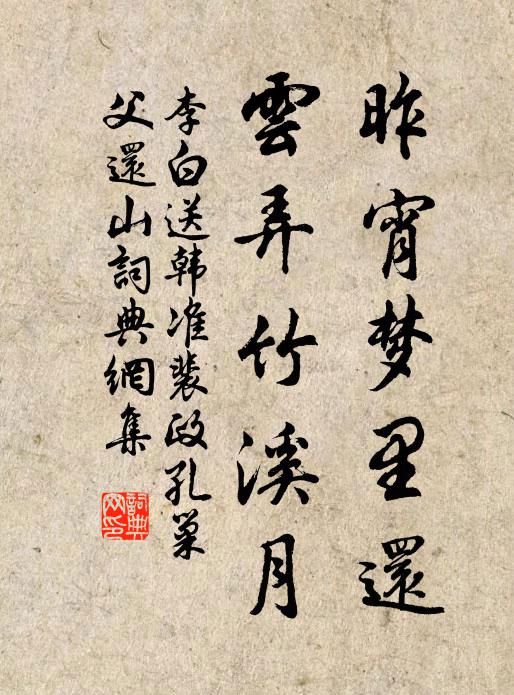 昨宵梦里還
雲弄竹溪月
李白送韩准裴政孔巢
父還山詞典網集
詞典
网印